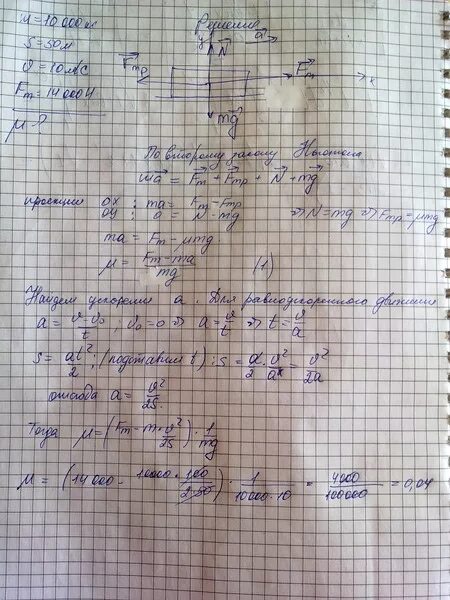 м = 10 000 кг
Решение
S = 50 м
y N a
v = 10 м/с
Fтр Fт x
Fт = 14 000 Н
μ - ?
mg
По второму закону Ньютона
ma = Fт + Fтр + N + mg
проекции ox : ma = Fт - Fтр
oy : 0 = N - mg ⇒ N = mg ⇒ Fтр = μmg
ma = Fт - μmg
μ = (Fт - ma)/mg (1)
Найдем ускорение a. Для равноускоренного движения
a = (v - v₀)/t ; v₀ = 0 ⇒ a = v/t ⇒ t = v/a
S = at²/2 ; (подставим t) : S = a/2 · v²/a² = v²/2a
отсюда a = v²/2S.
Тогда μ = (Fт - m · v²/2S) · 1/mg
μ = (14 000 - 10000 · 100/2·50) · 1/10000·10 = 4000/100000 = 0,04